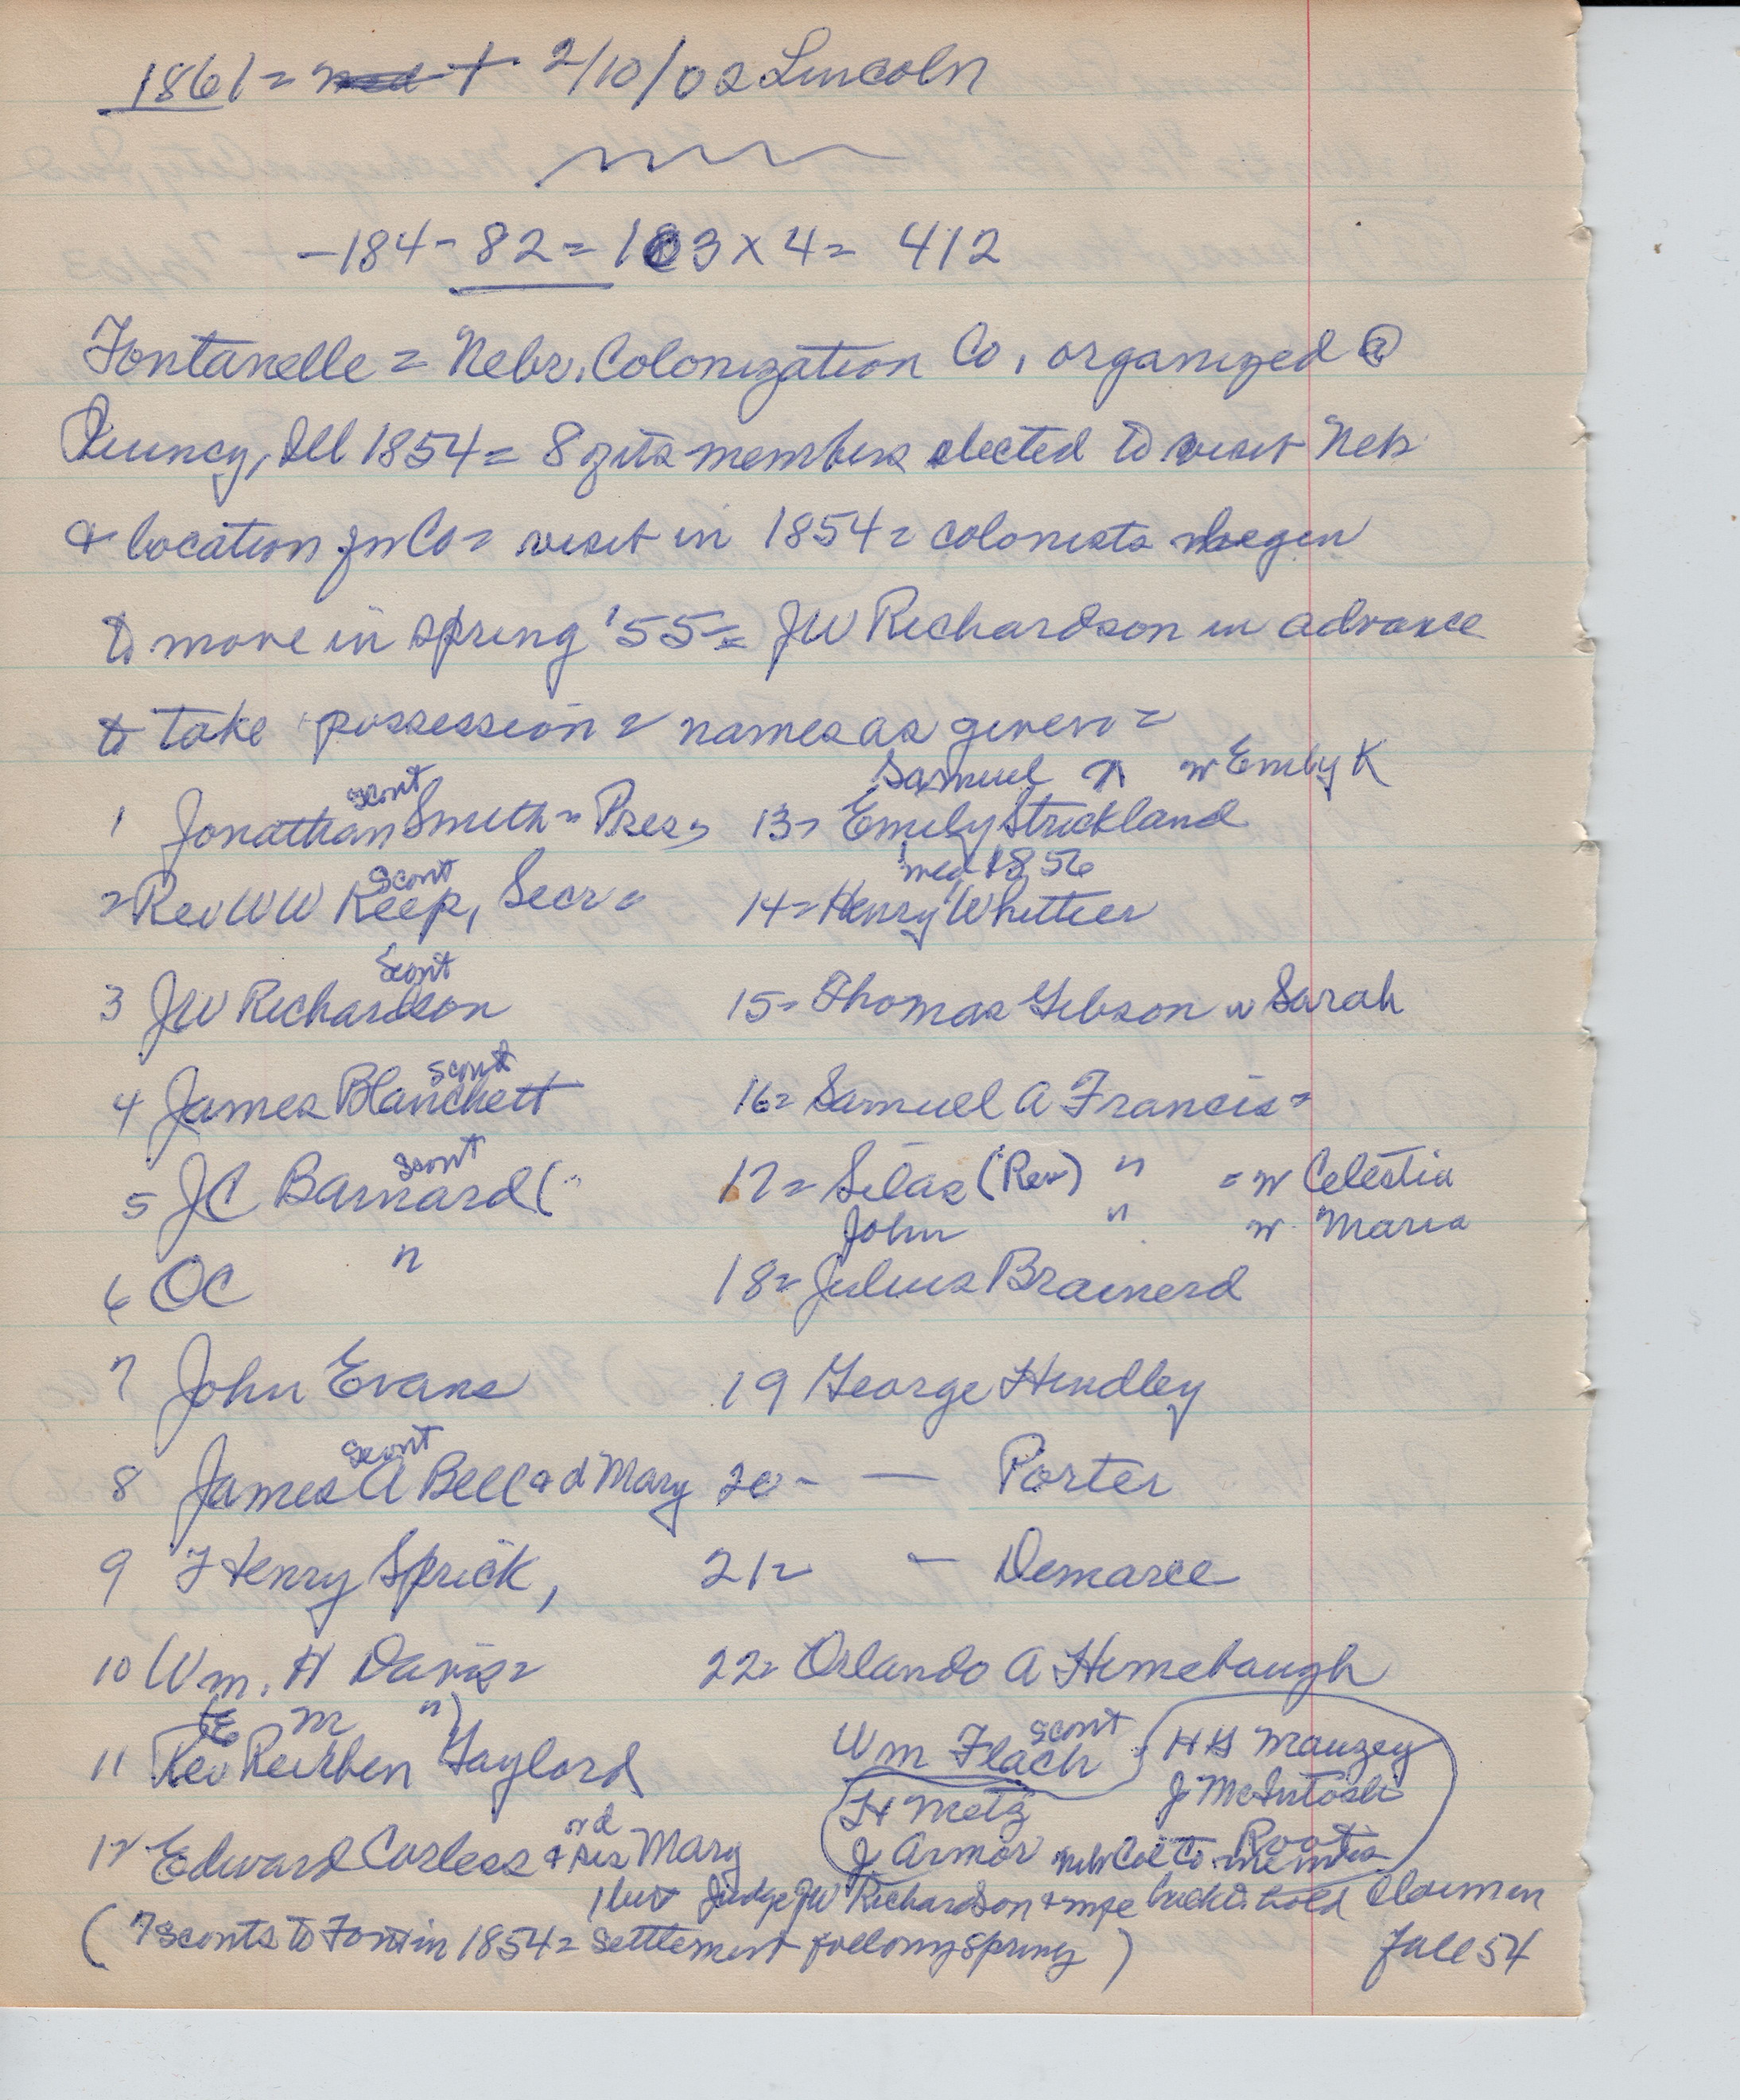 1861 = med + 2/10/02 Lincoln
-184 - 82 = 103 x 4 = 412
Fontanelle = Nebr. Colonization Co, organized @
Quincy, Ill 1854 = 8 of its members elected to visit Neb
& location for Co = visit in 1854 = colonists began
to move in spring '55 = JW Richardson in advance
to take possession = names as given =
Scout Samuel w Emily K
1 Jonathan Smith = Pres, 13 = Emily Strickland
Scout med 1856
2 Rev WW Keep, Secr = 14 = Henry Whittier
Scout
3 JW Richardson 15 = Thomas Gibson w Sarah
Scout
4 James Blanchett 16 = Samuel A Francis =
Scout
5 JC Barnard ( 17 = Silas (Rev) " = w Celestia
John " w Maria
6 OC " 18 = Julius Brainerd
7 John Evans 19 George Hindley
Scout
8 James A Bell & d Mary 20 - — Porter
9 Henry Sprick, 21 = — Demaree
10 Wm. H Davis = 22 = Orlando A Himebaugh
(E M ")
11 Rev Reuben Gaylord Wm Flach Scout HG Mauzey
J McIntosh
H Metz
12 Edward Corless & sis Mary J Armor Neb Col Co Root
Judge JW Richardson & wife back to hold Claim in
(7 Scouts to Font in 1854 = settlement following spring) fall 54